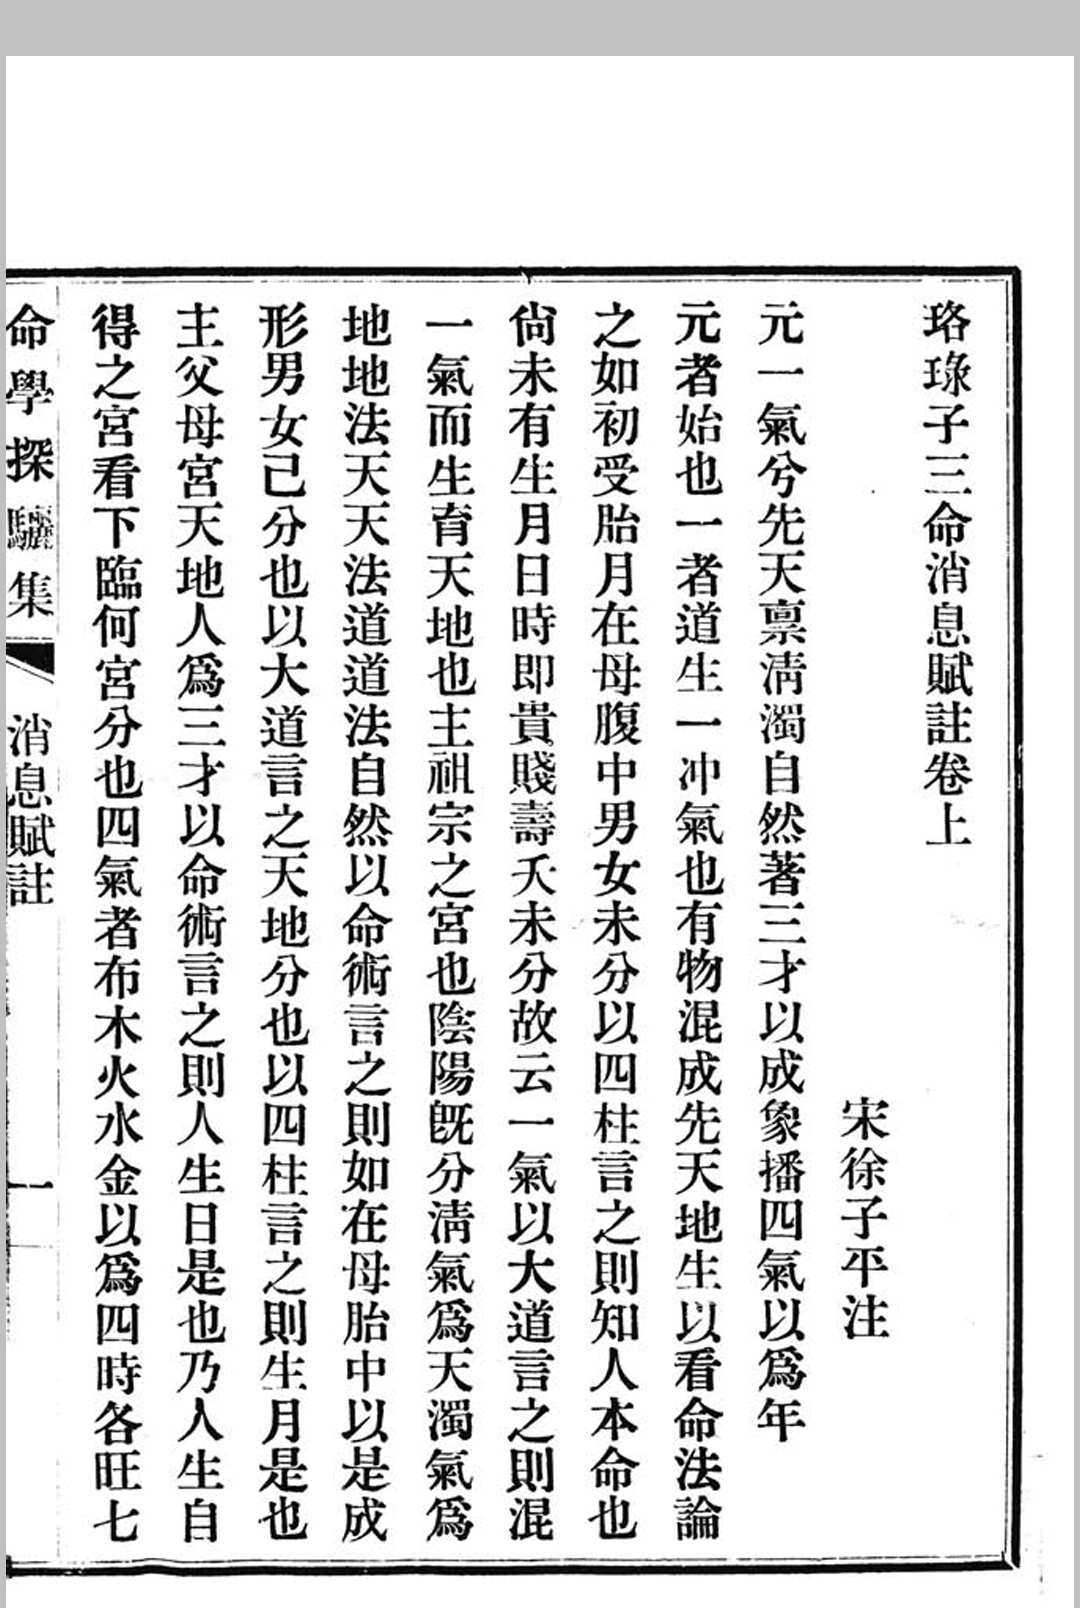 珞琭子三命消息賦註卷上
宋徐子平注
元一氣兮先天禀淸濁自然著三才以成象播四氣以爲年
元者始也一者道生一冲氣也有物混成先天地生以看命法論
之如初受胎月在母腹中男女未分以四柱言之則知人本命也
尙未有生月日時即貴賤壽夭未分故云一氣以大道言之則混
一氣而生育天地也主祖宗之宮也陰陽旣分淸氣爲天濁氣爲
地地法天天法道道法自然以命術言之則如在母胎中以是成
形男女己分也以大道言之天地分也以四柱言之則生月是也
主父母宮天地人爲三才以命術言之則人生日是也乃人生自
得之宮看下臨何宮分也四氣者布木火水金以爲四時各旺七
命學探驪集
消息賦註
一